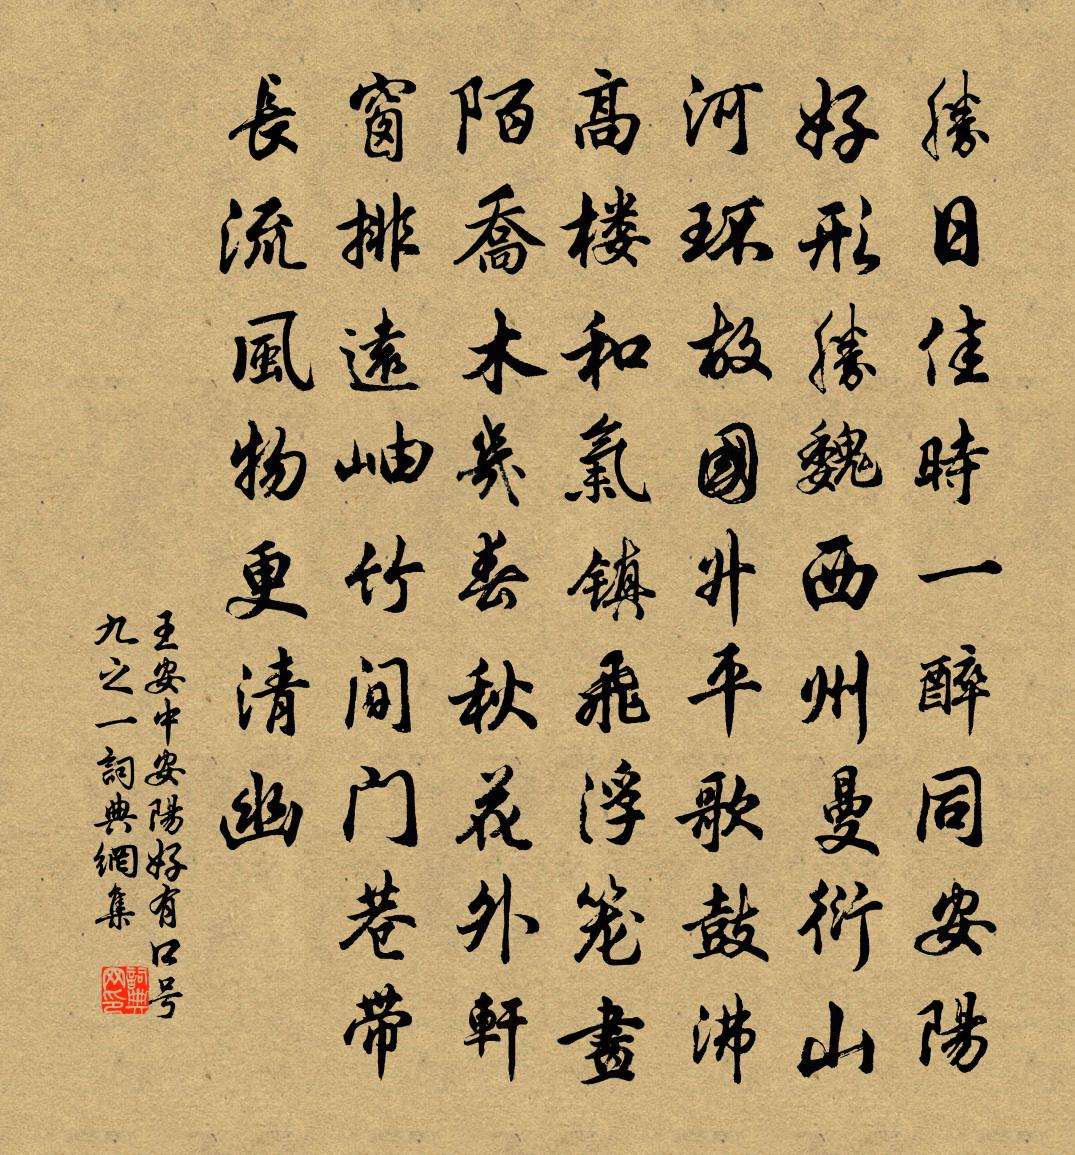 勝日佳時一醉同安陽
好形勝魏西州曼衍山
河環故國升平歌鼓沸
高楼和氣镇飛浮笼畫
陌喬木幾春秋花外軒
窗排遠岫竹间门巷带
長流風物更清幽
王安中安陽好有口号
九之一詞典網集
詞典网印